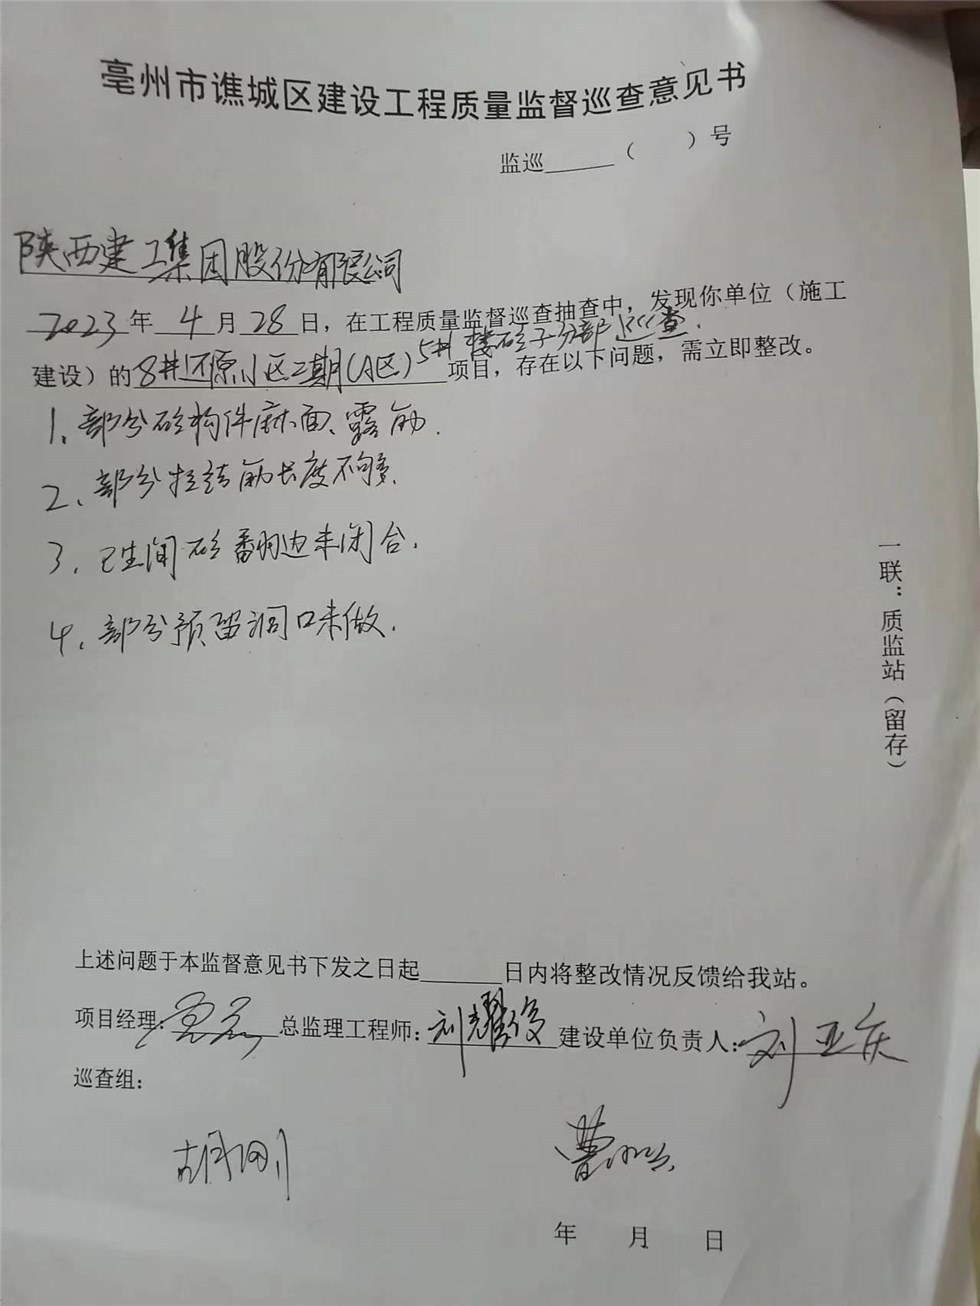 亳州市谯城区建设工程质量监督巡查意见书
监巡______（　　）号
陕西建工集团股份有限公司
2023年4月28日，在工程质量监督巡查抽查中，发现你单位（施工
5#楼砼子分部巡查.
建设）的8#还原小区二期(A区)项目，存在以下问题，需立即整改。
1、部分砼构件麻面、露筋.
2、部分拉结筋长度不够.
3、卫生间砼翻边未闭合.
4、部分预留洞口未做.
一联：质监站（留存）
上述问题于本监督意见书下发之日起______日内将整改情况反馈给我站。
项目经理: 总监理工程师:刘耀俊 建设单位负责人:刘亚庆
巡查组:
胡刚 曹
年 月 日